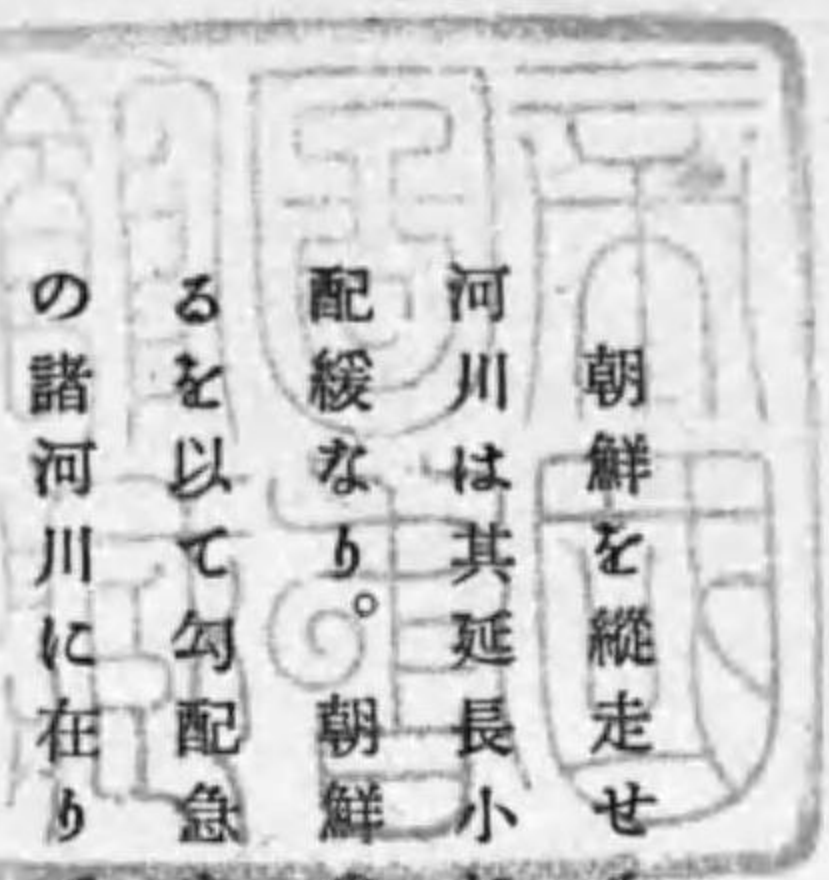 朝鮮を縱走せ
河川は其延長小
配緩なり。朝鮮
るを以て勾配急
の諸河川に在り